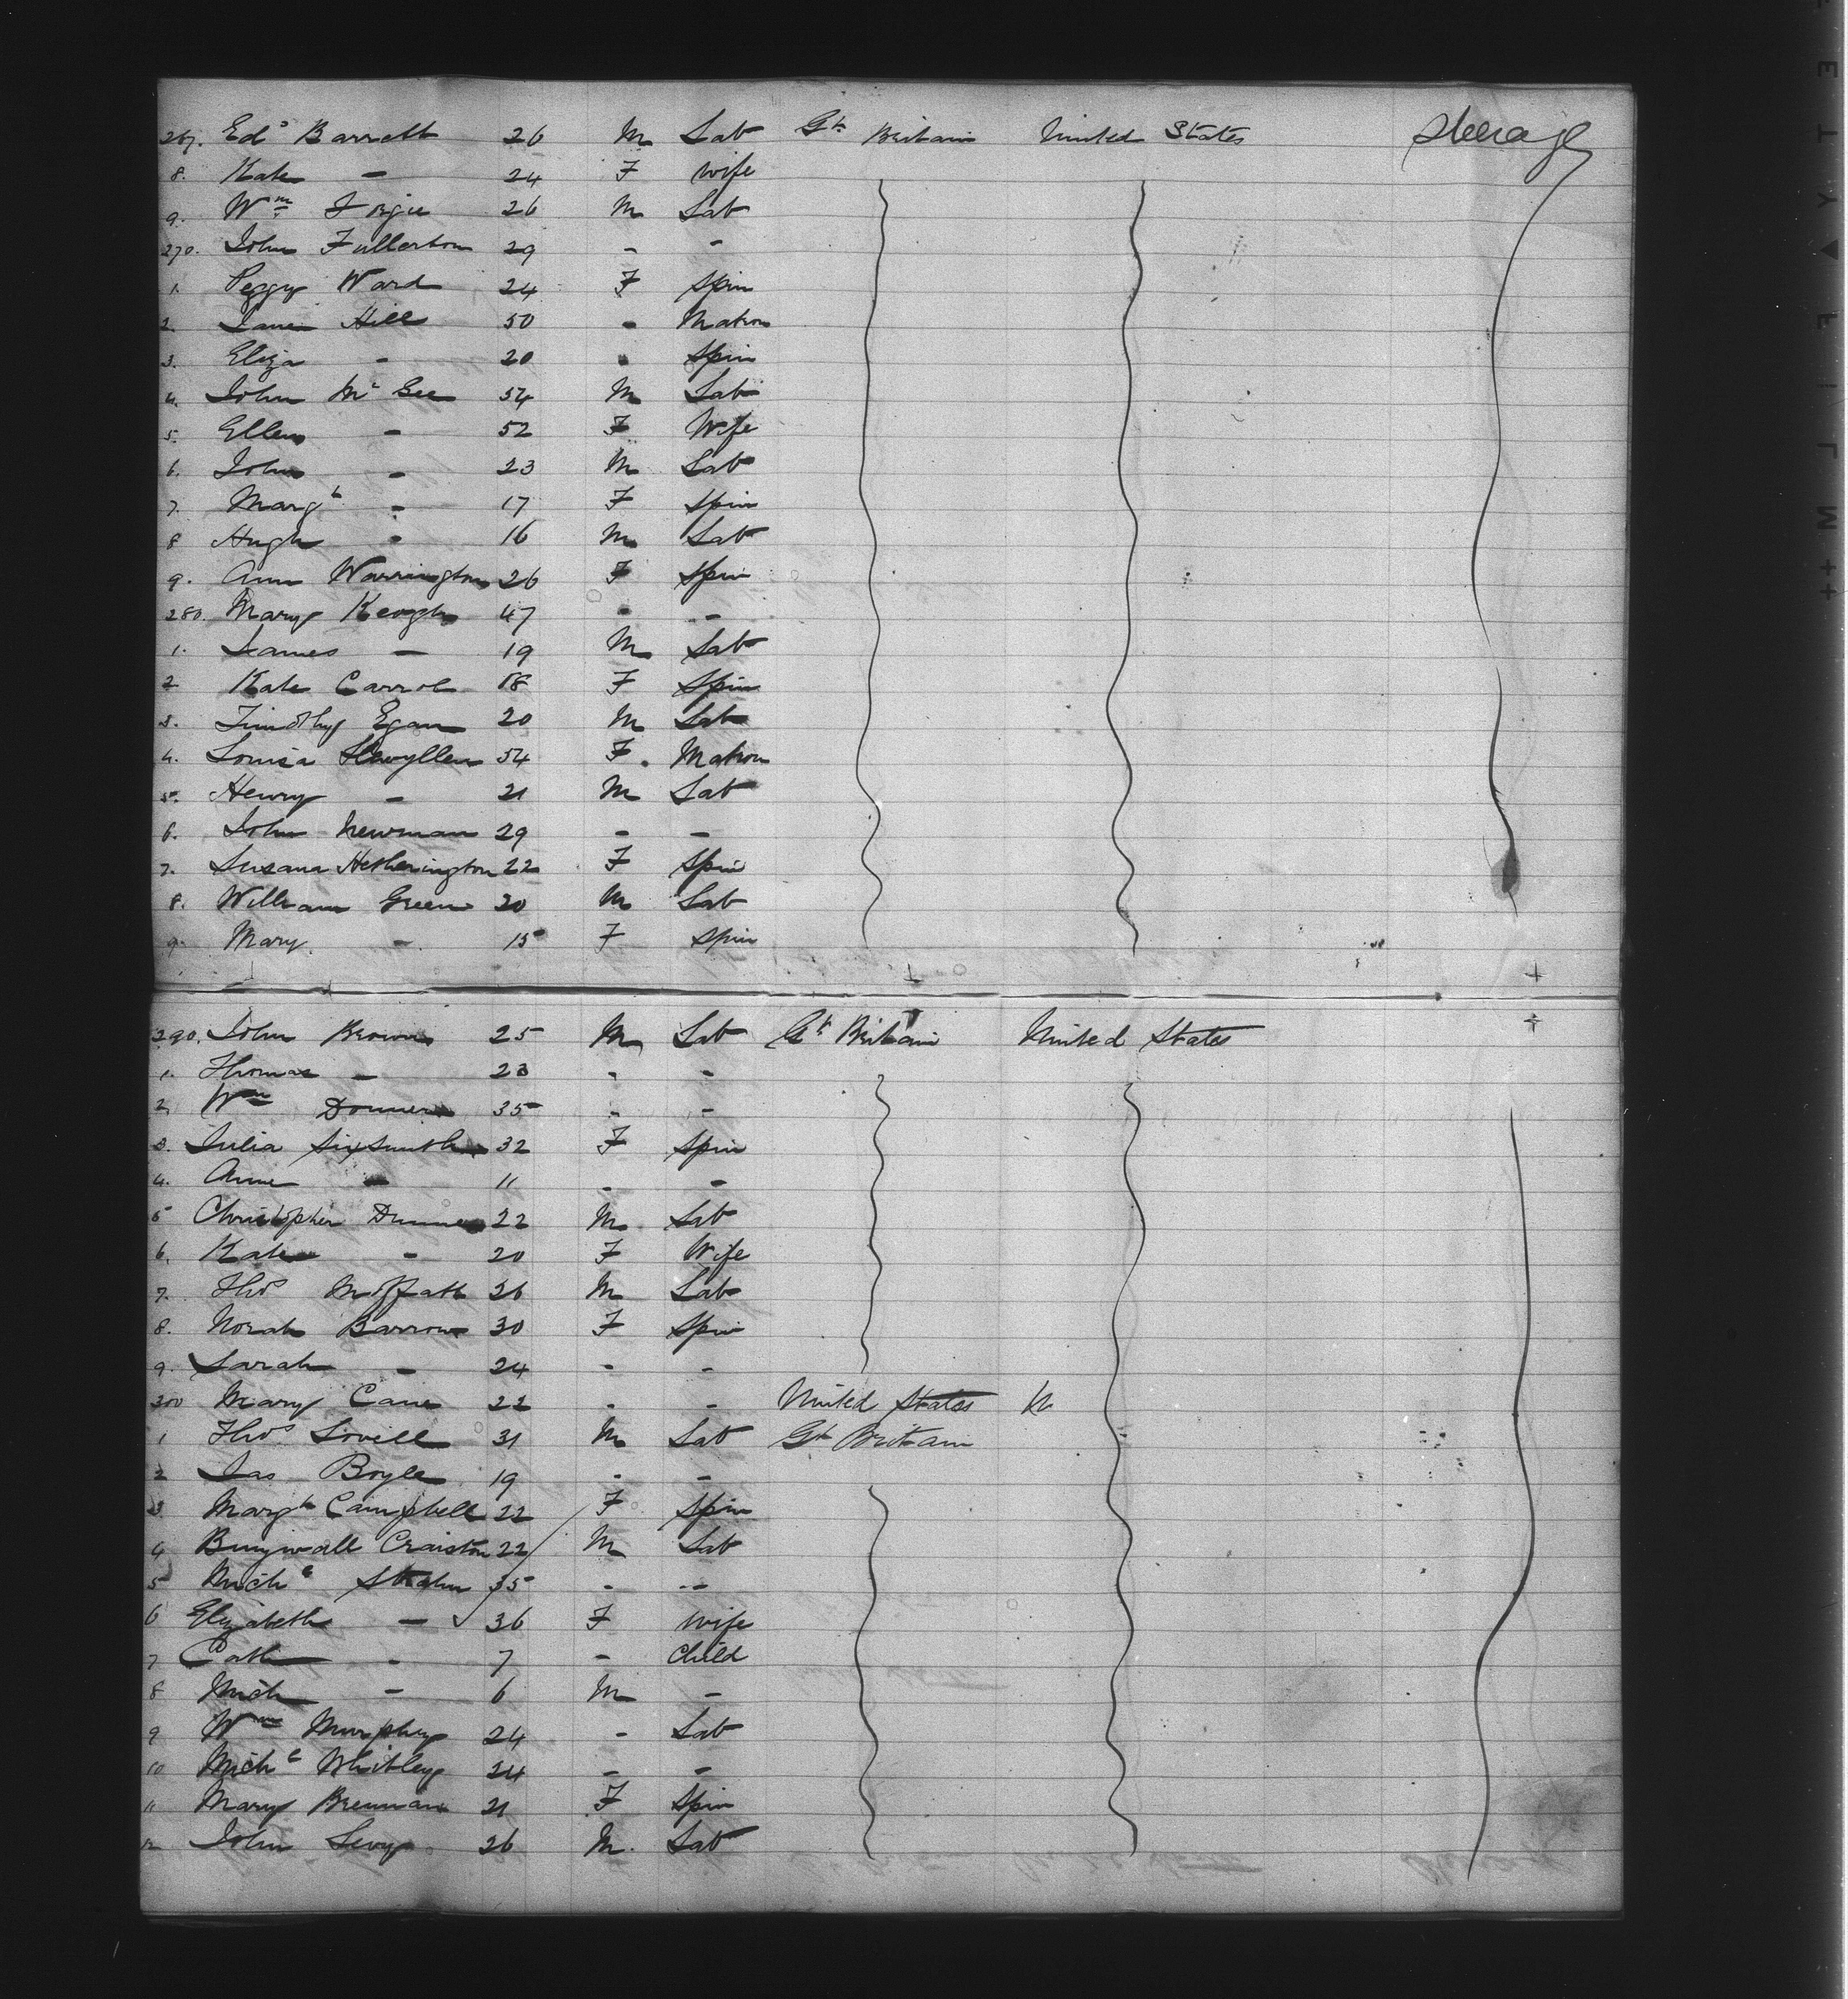 267. Edd Barrett 26 M Lab Gt Britain United States Steerage
8. Kate - 24 F Wife
9. Wm Forgie 26 M Lab
270. John Fullerton 29 - -
1. Peggy Ward 24 F Spin
2. Jane Hill 50 - Matron
3. Eliza - 20 - Spin
4. John McGee 54 M Lab
5. Ellen - 52 F Wife
6. John - 23 M Lab
7. Margt - 17 F Spin
8 Hugh - 16 M Lab
9. Ann Warrington 26 F Spin
280. Mary Keogh 47 - -
1. James - 19 M Lab
2 Kate Carrol 18 F Spin
3. Timothy Egan 20 M Lab
4. Louisa 54 F. Matron
5. Henry - 21 M Lab
6. John Newman 29 - -
7. Susana Hetherington 22 F Spin
8. William Green 20 M Lab
9. Mary - 15 F Spin
290. John Brown 25 M Lab Gt Britain United States
1. Thomas - 23 - -
2. Wm 35 - -
3. Julia Sixsmith 32 F Spin
4. Anne - 11 - -
5 Christopher Dunne 22 M Lab
6. Kate - 20 F Wife
7. Thos Moffatt 26 M Lab
8. Norah Barrow 30 F Spin
9. Sarah - 24 - -
300 Mary Cane 22 - - United States
1 Thos Lovell 31 M Lab Gt Britain
2 Jas Boyle 19 - -
3 Margt Campbell 22 F Spin
4 Craiston 22 M Lab
5 Michl 35 - -
6 Elizabeth - 36 F Wife
7 Cath - 7 - Child
8 Mich - 6 M -
9 Wm Murphy 24 - Lab
10 Michl Whitley 24 - -
11 Mary Brennan 21 F Spin
12 John Levy 26 M. Lab